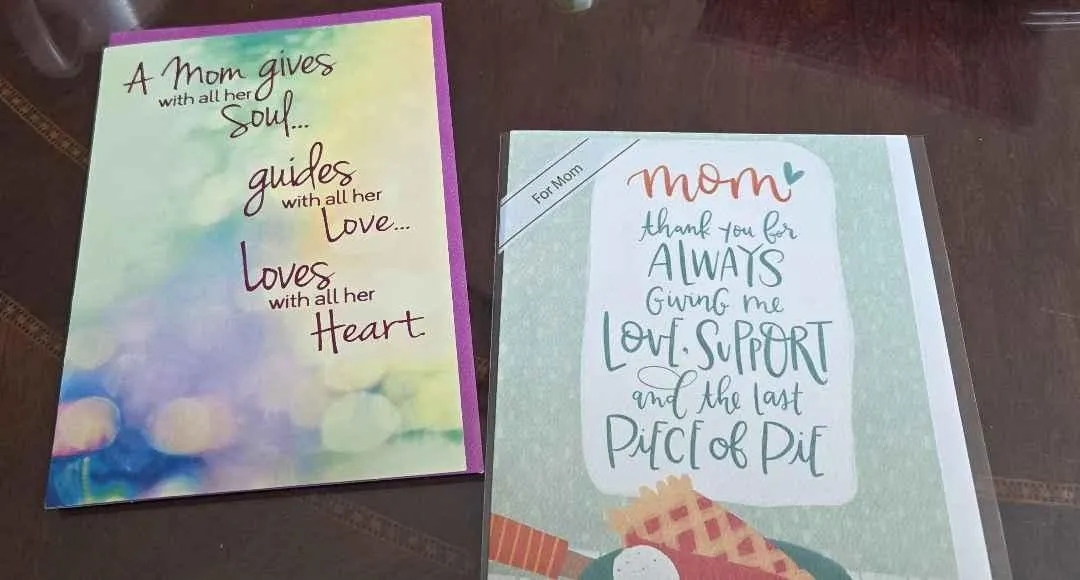 A Mom gives
with all her
Soul...
guides
with all her
Love...
Loves
with all her
Heart.
For Mom
mom
thank you for
ALWAYS
Giving me
LOVE, SUPPORT
and the last
PiECE of PiE